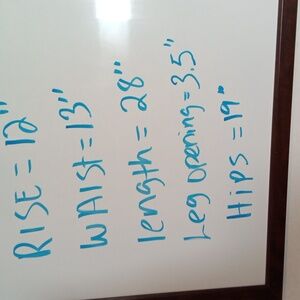 RISE = 12"
WAIST = 13"
length = 28"
Leg opening = 3.5"
Hips = 19"